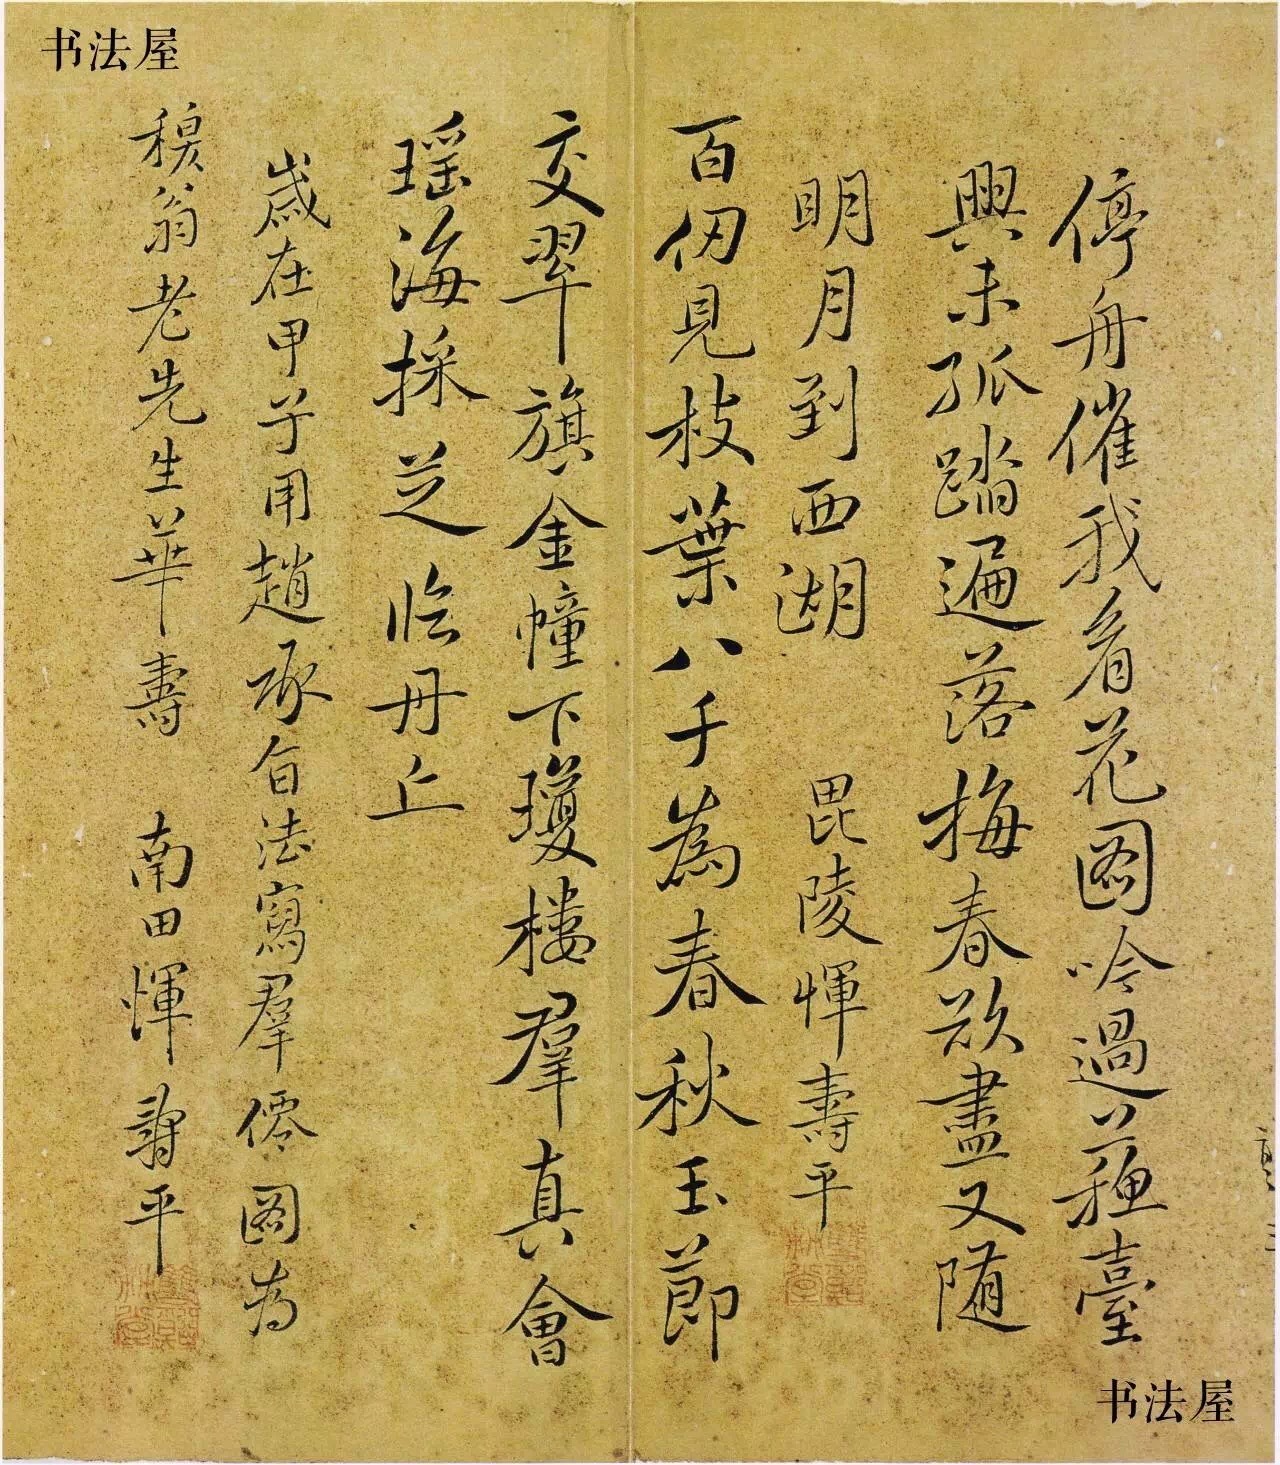 书法屋
停舟催我看花圖吟過蘇臺
興未孤踏遍落梅春欲盡又随
明月到西湖 毘陵惲壽平
百仞見枝葉八千為春秋玉節
交翠旗金幢下瓊樓羣真會
瑶海採芝臨丹丘
歲在甲子用趙承旨法寫羣僊圖為
穉翁老先生華壽 南田惲壽平
书法屋